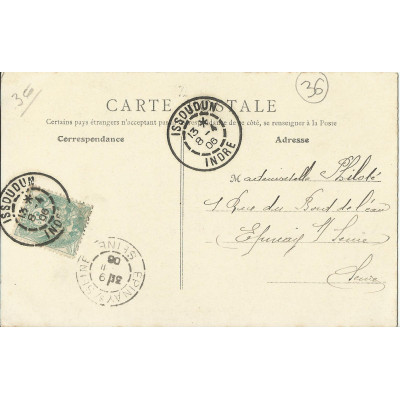 36
36
CARTE POSTALE
Certains pays étrangers n'acceptant pas de correspondance de ce côté, se renseigner à la Poste
Correspondance
Adresse
ISSOUDUN
13 * 4
8 - 06
INDRE
Mademoiselle Philote
1 Rue du Bord de l'eau
Epinay s/ Seine
Seine
ISSOUDUN
13 * 4
8 - 06
INDRE
EPINAY S SEINE
SEINE
06